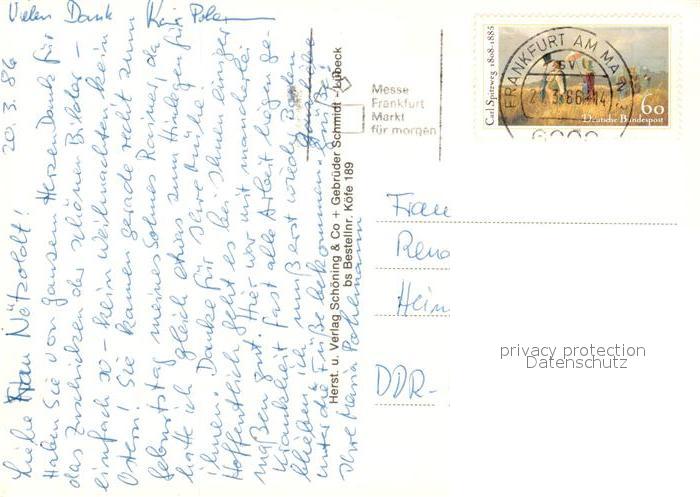 Vielen Dank
20.3.86
Liebe Frau Nötzoldt!
Haben Sie von ganzem Herzen Dank für
das Zuschicken der schönen Bilder –
einfach so – kein Weihnachten kein
Ostern! Sie kamen gerade recht zum
Geburtstag meines Sohnes Rainer, da
hatte ich gleich etwas zum Hinlegen für
ihnen. Danke für Ihre Mühe!
Hoffentlich geht es bei Ihnen einiger
maßen gut. Hier war mit mancherlei
Krankheit fast alle Arbeit liegenge-
blieben, ich muß erst wieder Boden
unter die Füße bekommen.
Ihre Maria Pohlmann
Herst. u. Verlag Schöning & Co + Gebrüder Schmidt - Lübeck
bs Bestellnr. Köfe 189
Messe
Frankfurt
Markt
für morgen
FRANKFURT AM MAIN
Carl Spitzweg 1808-1885
60
Deutsche Bundespost
Frau
Rena
Hein
DDR-
privacy protection
Datenschutz